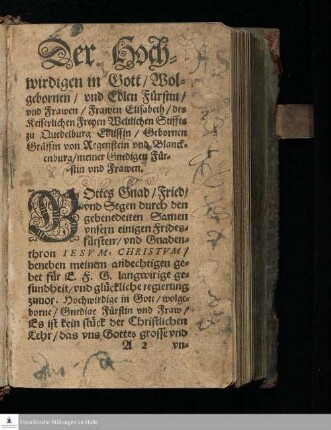 Der Hoch-
wirdigen in Gott / Wol-
gebornen / vnd Edlen Fürstin /
vnd Frawen / Frawen Elisabeth / des
Keiserlichen Freyen Weltlichen Stiffts
zu Quedelburg Ebtissin / Gebornen
Gräffin von Regenstein vnd Blanck-
enburg / meiner Gnedigen Für-
stin vnd Frawen.
GOttes Gnad / Fried /
vnd Segen durch den
gebenedeiten Samen
vnsern einigen Frides-
fürsten / vnd Gnaden-
thron IESVM, CHRISTVM /
beneben meinem andechtigen ge-
bet für E. F. G. langwirige ge-
sundheit / vnd glückliche regierung
zuuor. Hochwirdige in Gott / wolge-
borne / Gnedige Fürstin vnd Fraw /
Es ist kein stück der Christlichen
Lehr / das vns Gottes grosse vnd
A 2 vn-
Franckesche Stiftungen zu Halle